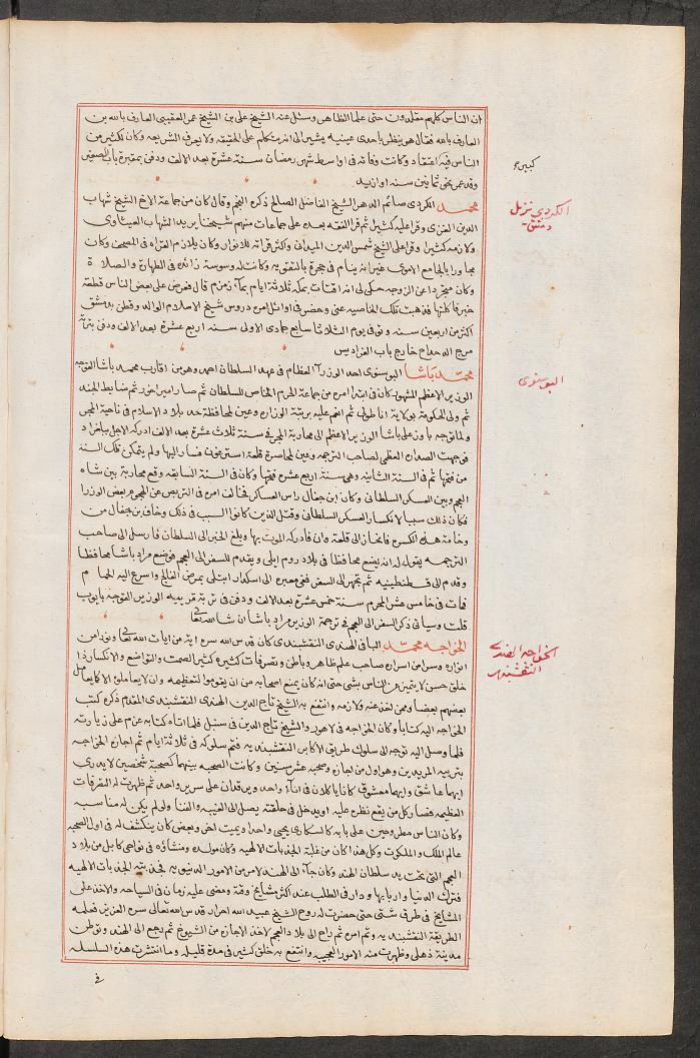 ان الناس كلهم مقلدون حتى علما الظاهر وسئل عنه الشيخ على بن الشيخ عمر العقيبى العارف بالله بن
العارف بالله فقال هو ينظر باحدى عينيه يشير الى انه يتكلم على الحقيقة ولا يعرف الشريعه وكان لكثير من
الناس فيه اعتقاد وكانت وفاته فى اواسط شهر رمضان سنة عشرة بعد الالف ودفن بمقبرة باب الصغير
وقد عمر نحو ثمانين سنه او ازيد
كبير
محمد الكردى صائم الدهر الشيخ الفاضل الصالح ذكره النجم وقال كان من جماعة الاخ الشيخ شهاب
الكردى نزيل
دمشق
الدين الغزى وقرا عليه كثيرا ثم قرا الفقه بعده على جماعات منهم شيخنا يريد الشهاب العيثاوى
ولازمه كثيرا وقرا على الشيخ شمس الدين الميدانى وكثر قراته للانوار وكان يلازم القراة فى المصحف وكان
مجاورا بالجامع الاموى غير انه ينام فى حجرة بالتقويه وكانت له وسوسة زائده فى الطهارة والصلاة
وكان متجردا عن الزوجه حكى لى انه اقتات بمكة ثلاثة ايام بماء زمزم قال فعرض على بعض الناس قطعة
خبز فاكلتها فذهبت تلك الخاصيه عنى وحضر فى اوائل امره دروس شيخ الاسلام الوالد وقطن بدمشق
اكثر من اربعين سنه وتوفى يوم الثلاثا سابع جمادى الاولى سنه اربع عشرة بعد الالف ودفن بتربة
مرج الدحداح خارج باب الفراديس
محمد باشا البوسنوى احد الوزراء العظام فى عهد السلطان احمد وهو من اقارب محمد باشا القوجه
البوسنوى
الوزير الاعظم المشهور كان فى ابتدا امره من جماعة الحرم الخاص للسلطان ثم صار امير اخور ثم ضابط الجند
ثم ولى الحكومة بولاية اناطولى ثم انعم عليه برتبة الوزاره وعين لمحافظة حد بلاد الاسلام فى ناحية المجر
ولما توجه ياوز على باشا الوزير الاعظم الى محاربة المجر فى سنة ثلاث عشرة بعد الالف ادركه الاجل ببلغراد
فوجهت الصداره العظمى لصاحب الترجمه وعين لمحاصرة قلعة استرغون فسار اليها ولم يتمكن تلك السنة
من فتحها ثم فى السنة الثانيه وهى سنة اربع عشره فتحها وكان فى السنة السابقه وقع محاربة بين شاه
العجم وبين العسكر السلطانى وكان ابن جغال راس العسكر فخالف امره فى التربص عن الهجوم بعض الوزرا
فكان ذلك سببا لانكسار العسكر السلطانى وقتل الذين كانوا السبب فى ذلك وخاف ابن جغال من
وخامة هذه الكسره فانحاز الى قلعة وان فادركه الموت بها وبلغ الخبر الى السلطان فارسل الى صاحب
الترجمه يقول له انه يضع محافظا فى بلاد روم ايلى ويقدم للسفر الى العجم فوضع مراد باشا محافظا
وقدم الى قسطنطينيه ثم تجهز الى السفر ففى معبره الى اسكدار ابتلى بمرض الفالج واسرع اليه الحمام
فمات فى خامس عشر المحرم سنة خمس عشرة بعد الالف ودفن فى تربة قريبه الوزير القوجه بايوب
قلت وسياتى ذكر السفر الى العجم فى ترجمة الوزير مراد باشا ان شا الله تعالى
الخواجه محمد الباقى الهندى النقشبندى كان قدس الله سره اية من ايات الله تعالى ونورا من
الخواجه الهندى
النقشبندى
انواره وسرا من اسراره صاحب علم ظاهر وباطن وتصرفات كثيره كثير الصمت والتواضع والانكسار ذا
خلق حسن لا يتميز عن الناس بشى حتى انه كان يمنع اصحابه من ان يقوموا لتعظيمه وان لا يعاملوه الا كما يعامل
بعضهم بعضا وممن اخذ عنه ولازمه وانتفع به الشيخ تاج الدين الهندى النقشبندى المقدم ذكره كتب
الخواجه اليه كتابا وكان الخواجه فى لاهور والشيخ تاج الدين فى سنبل فلما اتاه كتابه عزم على زيارته
فلما وصل اليه توجه الى سلوك طريق الاكابر النقشبنديه فتم سلوكه فى ثلاثة ايام ثم اجازه الخواجه
بتربية المريدين وهو اول من اجازه وصحبه عشر سنين وكانت الصحبه بينهما كصحبة شخصين لا يدرى
ايهما عاشق وايهما معشوق كانا ياكلان فى اناء واحد ويرقدان على سرير واحد ثم ظهرت له التصرفات
العظيمه فصار كل من يقع نظره عليه او يدخل فى حلقته يصل الى الغيبه والفنا ولو لم يكن له مناسبه
وكان الناس مطروحين على بابه كالسكارى يحيى واحدا ويميت اخر وبعض كان ينكشف له فى اول الصحبه
عالم الملك والملكوت وكل هذا كان من غلبة الجذبات الالهيه وكان مولده ومنشاؤه فى نواحى كابل من بلاد
العجم التى تحت يد سلطان الهند وكان جاء الى الهند لامر من الامور الدنيويه فجذبته الجذبات الالهيه
فترك الدنيا واربابها ودار فى الطلب عند اكثر مشايخ وقته ومضى عليه زمان فى السياحه والاخذ على
المشايخ فى طرق شتى حتى حضرت له روح الشيخ عبيد الله احرار قدس الله تعالى سره العزيز فعلمه
الطريقة النقشبنديه وتم امره ثم راح الى بلاد العجم لاخذ الاجازه من الشيوخ ثم رجع الى الهند وتوطن
مدينة ذهلى وظهرت منه الامور العجيبه وانتفع به خلق كثير فى مدة قليله وما انتشرت هذه السلسله
فى